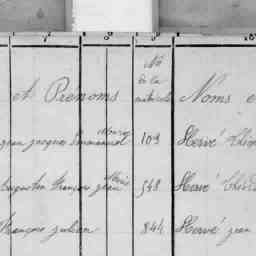 et Prenoms
No
de la
matricule
Noms e
jean jacques Emmanuel
109
Hervé
Augustin François jean
Marie
548
Hervé
François julien
844
Hervé jean